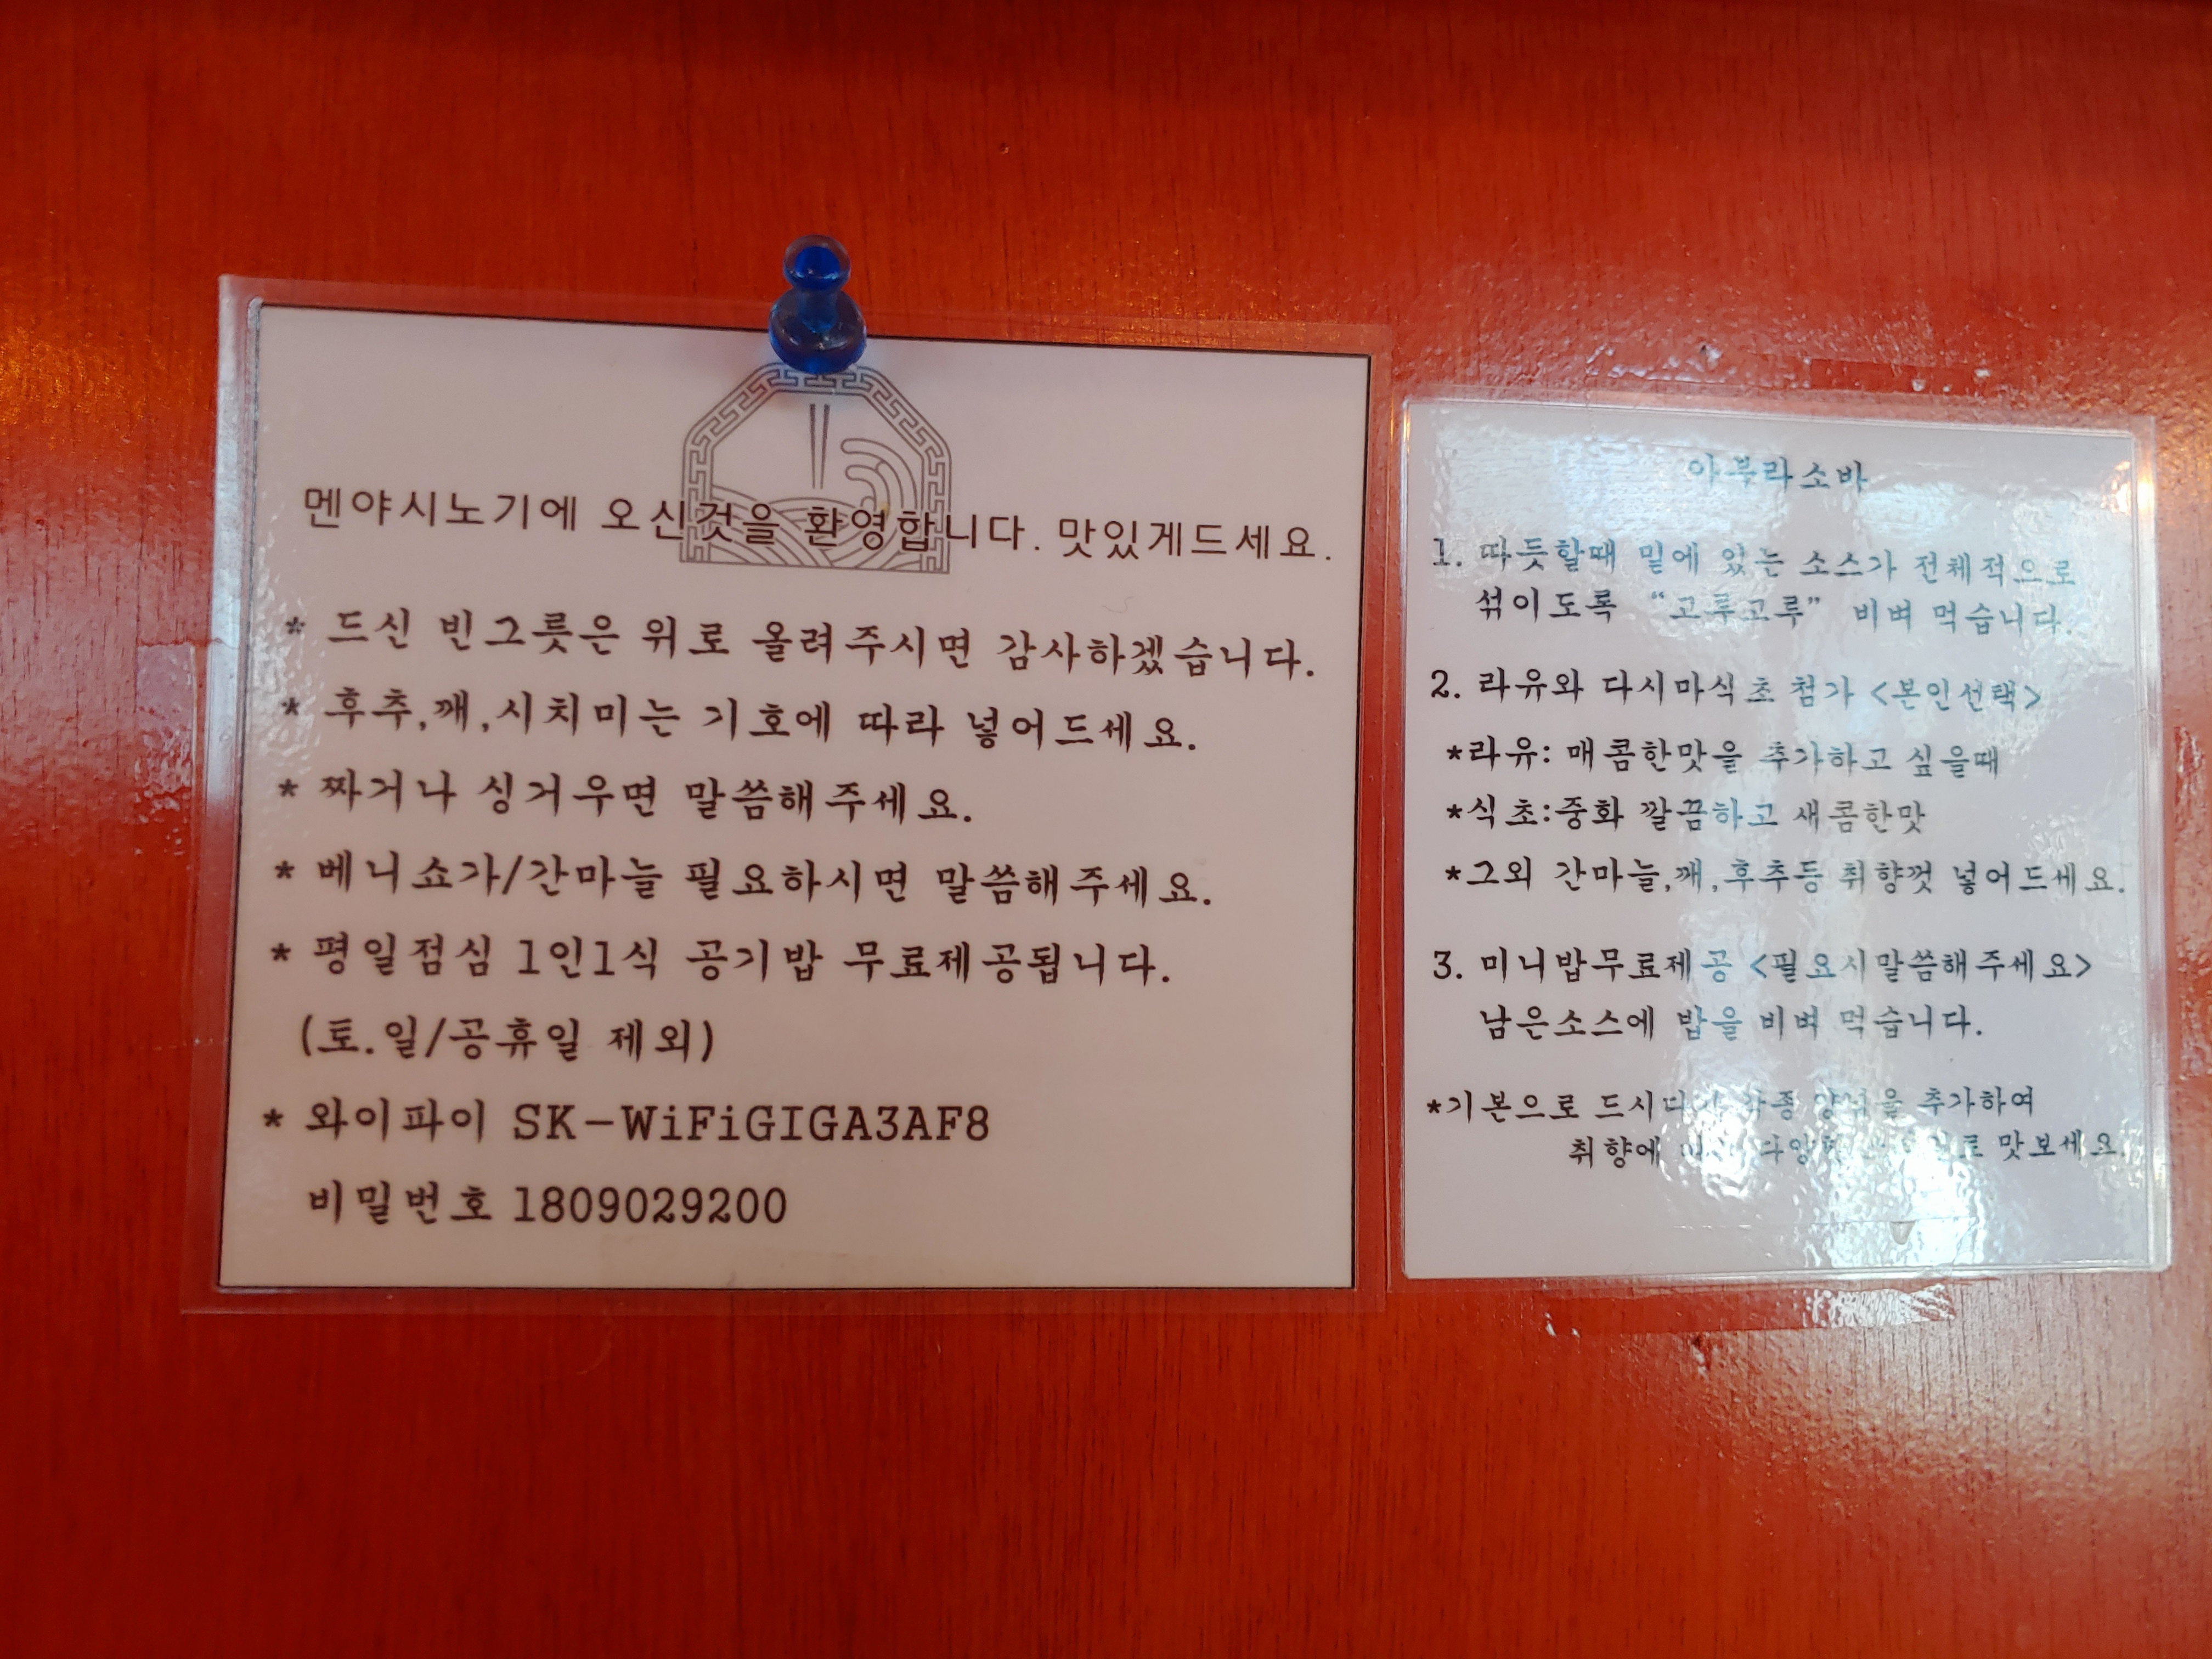 멘야시노기에 오신것을 환영합니다. 맛있게드세요.
* 드신 빈그릇은 위로 올려주시면 감사하겠습니다.
* 후추,깨,시치미는 기호에 따라 넣어드세요.
* 짜거나 싱거우면 말씀해주세요.
* 베니쇼가/간마늘 필요하시면 말씀해주세요.
* 평일점심 1인1식 공기밥 무료제공됩니다.
(토.일/공휴일 제외)
* 와이파이 SK-WiFiGIGA3AF8
비밀번호 1809029200
아부라소바
1. 따듯할때 밑에 있는 소스가 전체적으로
섞이도록 “고루고루” 비벼 먹습니다.
2. 라유와 다시마식초 첨가 <본인선택>
*라유: 매콤한맛을 추가하고 싶을때
*식초:중화 깔끔하고 새콤한맛
*그외 간마늘,깨,후추등 취향껏 넣어드세요.
3. 미니밥무료제공 <필요시말씀해주세요>
남은소스에 밥을 비벼 먹습니다.
*기본으로 드시다가 각종 양념을 추가하여
취향에 맛보세요.